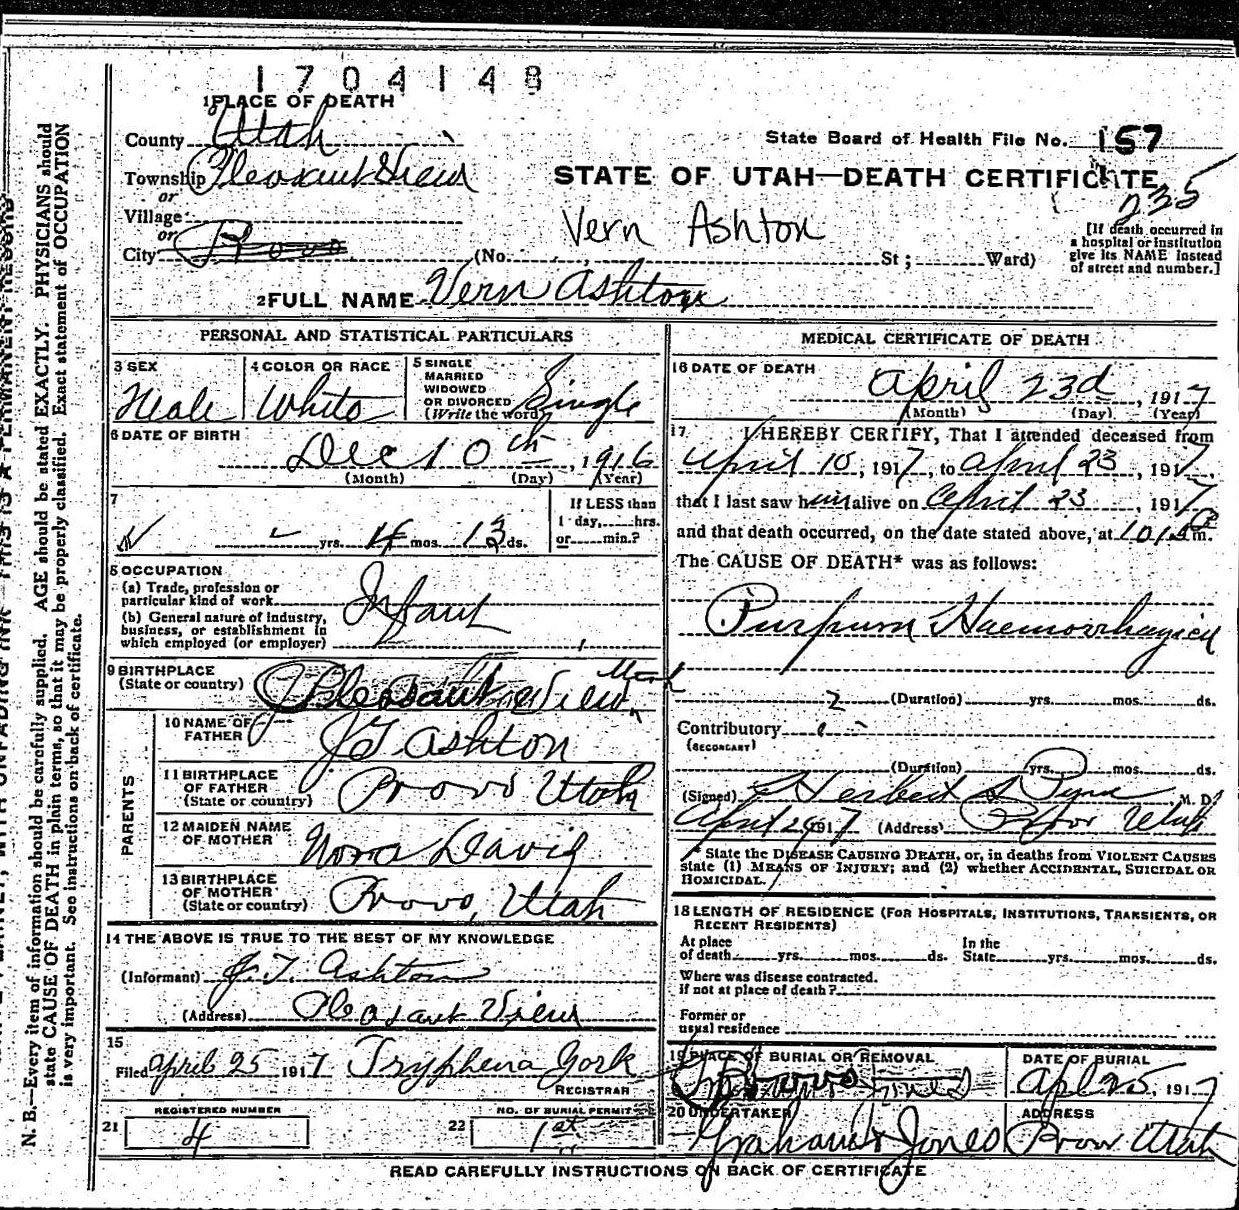 1704148
1 PLACE OF DEATH
County Utah
State Board of Health File No. 157
Township Pleasant View
STATE OF UTAH—DEATH CERTIFICATE
235
or
Village
or
City Provo
Vern Ashton
(No. St ; Ward)
[If death occurred in
a hospital or institution
give its NAME instead
of street and number.]
2 FULL NAME Vern Ashton
PERSONAL AND STATISTICAL PARTICULARS
3 SEX
Male
4 COLOR OR RACE
White
5 SINGLE
MARRIED
WIDOWED
OR DIVORCED
(Write the word)
Single
6 DATE OF BIRTH
Dec 10th, 1916
(Month) (Day) (Year)
7
If LESS than
1 day, hrs.
or min.?
yrs. 4 mos. 13 ds.
8 OCCUPATION
(a) Trade, profession or
particular kind of work
(b) General nature of industry,
business, or establishment in
which employed (or employer)
Infant
9 BIRTHPLACE
(State or country)
Pleasant View Utah
PARENTS
10 NAME OF
FATHER
J T Ashton
11 BIRTHPLACE
OF FATHER
(State or country)
Provo Utah
12 MAIDEN NAME
OF MOTHER
Nora Davis
13 BIRTHPLACE
OF MOTHER
(State or country)
Provo, Utah
14 THE ABOVE IS TRUE TO THE BEST OF MY KNOWLEDGE
(Informant) J. T. Ashton
(Address) Pleasant View
15
Filed April 25 1917 Tryphena York
REGISTRAR
21
REGISTERED NUMBER
4
22
NO. OF BURIAL PERMIT
1st
MEDICAL CERTIFICATE OF DEATH
16 DATE OF DEATH
April 23d, 1917
(Month) (Day) (Year)
17 I HEREBY CERTIFY, That I attended deceased from
April 10, 1917, to April 23, 1917,
that I last saw him alive on April 23, 1917
and that death occurred, on the date stated above, at 1015 P m.
The CAUSE OF DEATH* was as follows:
Purpura Haemorrhagica
2 (Duration) yrs. mos. ds.
Contributory
(SECONDARY)
(Duration) yrs. mos. ds.
(Signed) Herbert S Pyne M. D.
April 24 1917 (Address) Provo Utah
* State the DISEASE CAUSING DEATH, or, in deaths from VIOLENT CAUSES
state (1) MEANS OF INJURY; and (2) whether ACCIDENTAL, SUICIDAL OR
HOMICIDAL.
18 LENGTH OF RESIDENCE (FOR HOSPITALS, INSTITUTIONS, TRANSIENTS, OR
RECENT RESIDENTS)
At place
of death yrs. mos. ds.
In the
State yrs. mos. ds.
Where was disease contracted.
if not at place of death?
Former or
usual residence
19 PLACE OF BURIAL OR REMOVAL
Provo
DATE OF BURIAL
Apl 25, 1917
20 UNDERTAKER
Graham & Jones
ADDRESS
Provo Utah
READ CAREFULLY INSTRUCTIONS ON BACK OF CERTIFICATE
N. B.—Every item of information should be carefully supplied. AGE should be stated EXACTLY. PHYSICIANS should
state CAUSE OF DEATH in plain terms, so that it may be properly classified. Exact statement of OCCUPATION
is very important. See instructions on back of certificate.